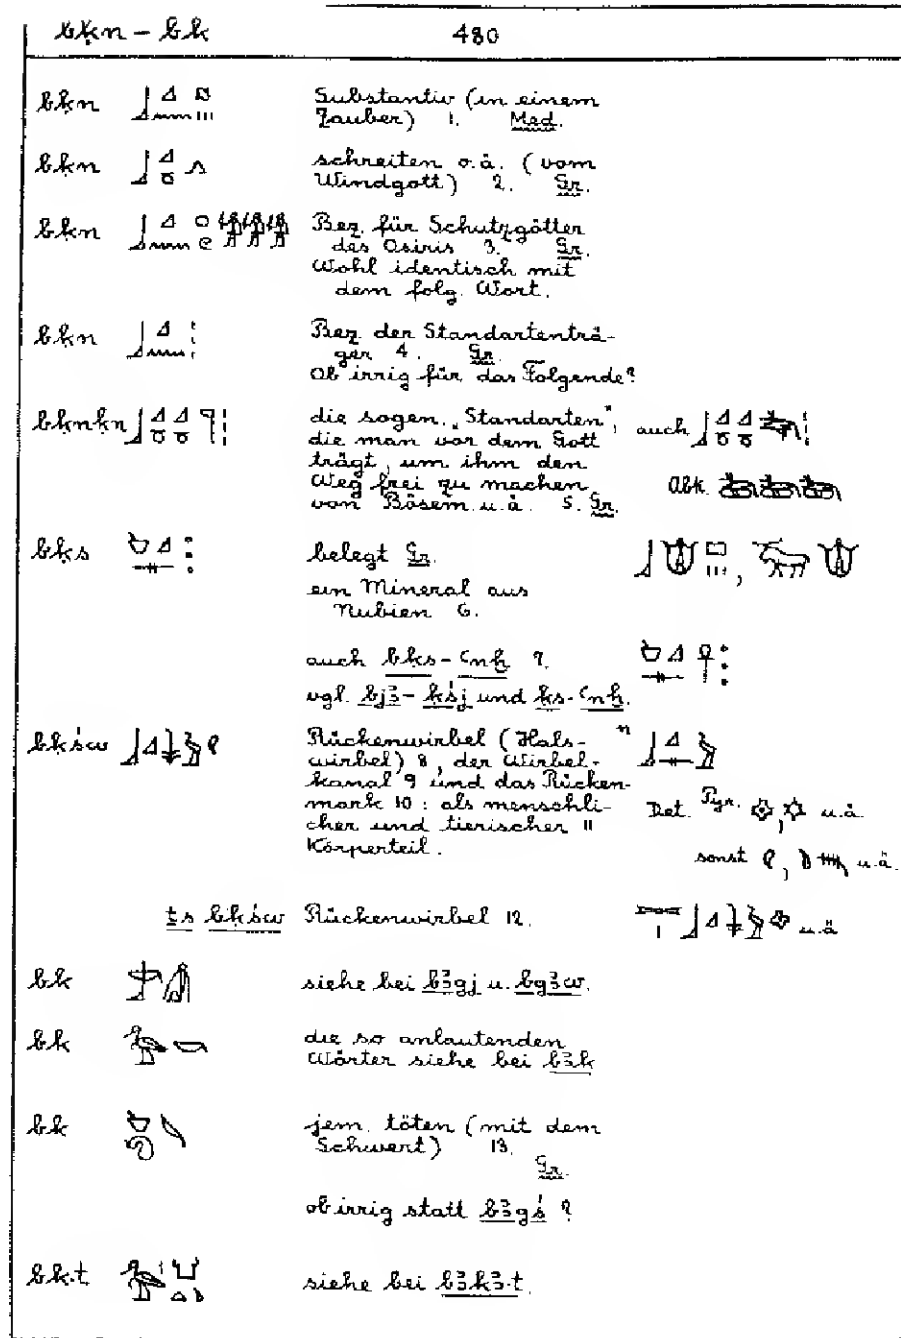 bḳn – bk 480
bḳn Substantiv (in einem
Zauber) 1. Med.
bḳn schreiten o.ä. (vom
Windgott) 2. Gr.
bḳn Bez. für Schutzgötter
des Osiris 3. Gr.
Wohl identisch mit
dem folg. Wort.
bḳn Bez. der Standartenträ-
ger 4. Gr.
Ob irrig für das Folgende?
bḳnḳn die sogen. „Standarten“, auch
die man vor dem Gott
trägt, um ihm den
Weg frei zu machen Abk.
von Bösem u.ä. 5. Gr.
bḳs belegt Gr.
ein Mineral aus
Nubien 6.
auch bḳs-ꜥnḫ 7.
vgl. bjꜣ-ḳśj und ḳs-ꜥnḫ.
bḳśw Rückenwirbel (Hals-
wirbel) 8, der Wirbel-
kanal 9 und das Rücken-
mark 10: als menschli-
cher und tierischer 11 Det. Pyr. u.ä.
Körperteil. sonst u.ä.
ṯs bḳśw Rückenwirbel 12. u.ä.
bk siehe bei bꜣgj u. bgꜣw.
bk die so anlautenden
Wörter siehe bei bꜣk
bk jem. töten (mit dem
Schwert) 13.
Gr.
ob irrig statt bꜣgś ?
bk.t siehe bei bꜣkꜣ.t.